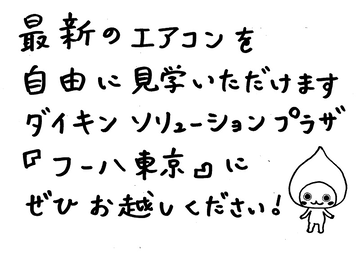 最新のエアコンを
自由に見学いただけます
ダイキン ソリューションプラザ
『フーハ東京』に
ぜひお越しください!